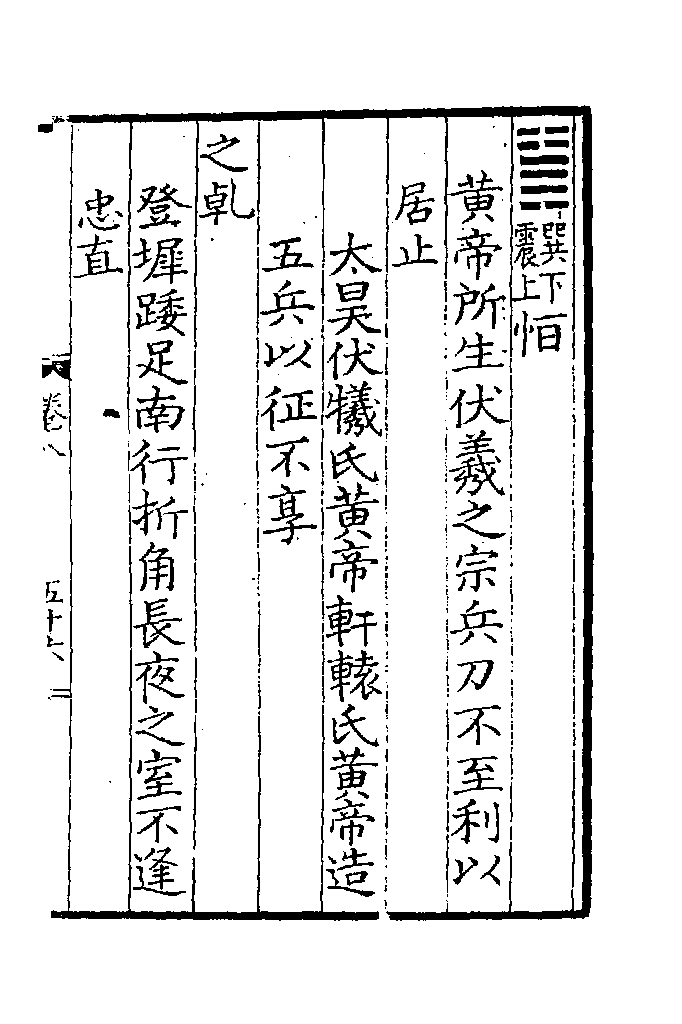 巽下震上恒
黄帝所生伏羲之宗兵刀不至利以
居止
太昊伏犧氏黄帝軒轅氏黄帝造
五兵以征不享
之乹
登墀踒足南行折角長夜之室不逢
忠直
卷八
五十六